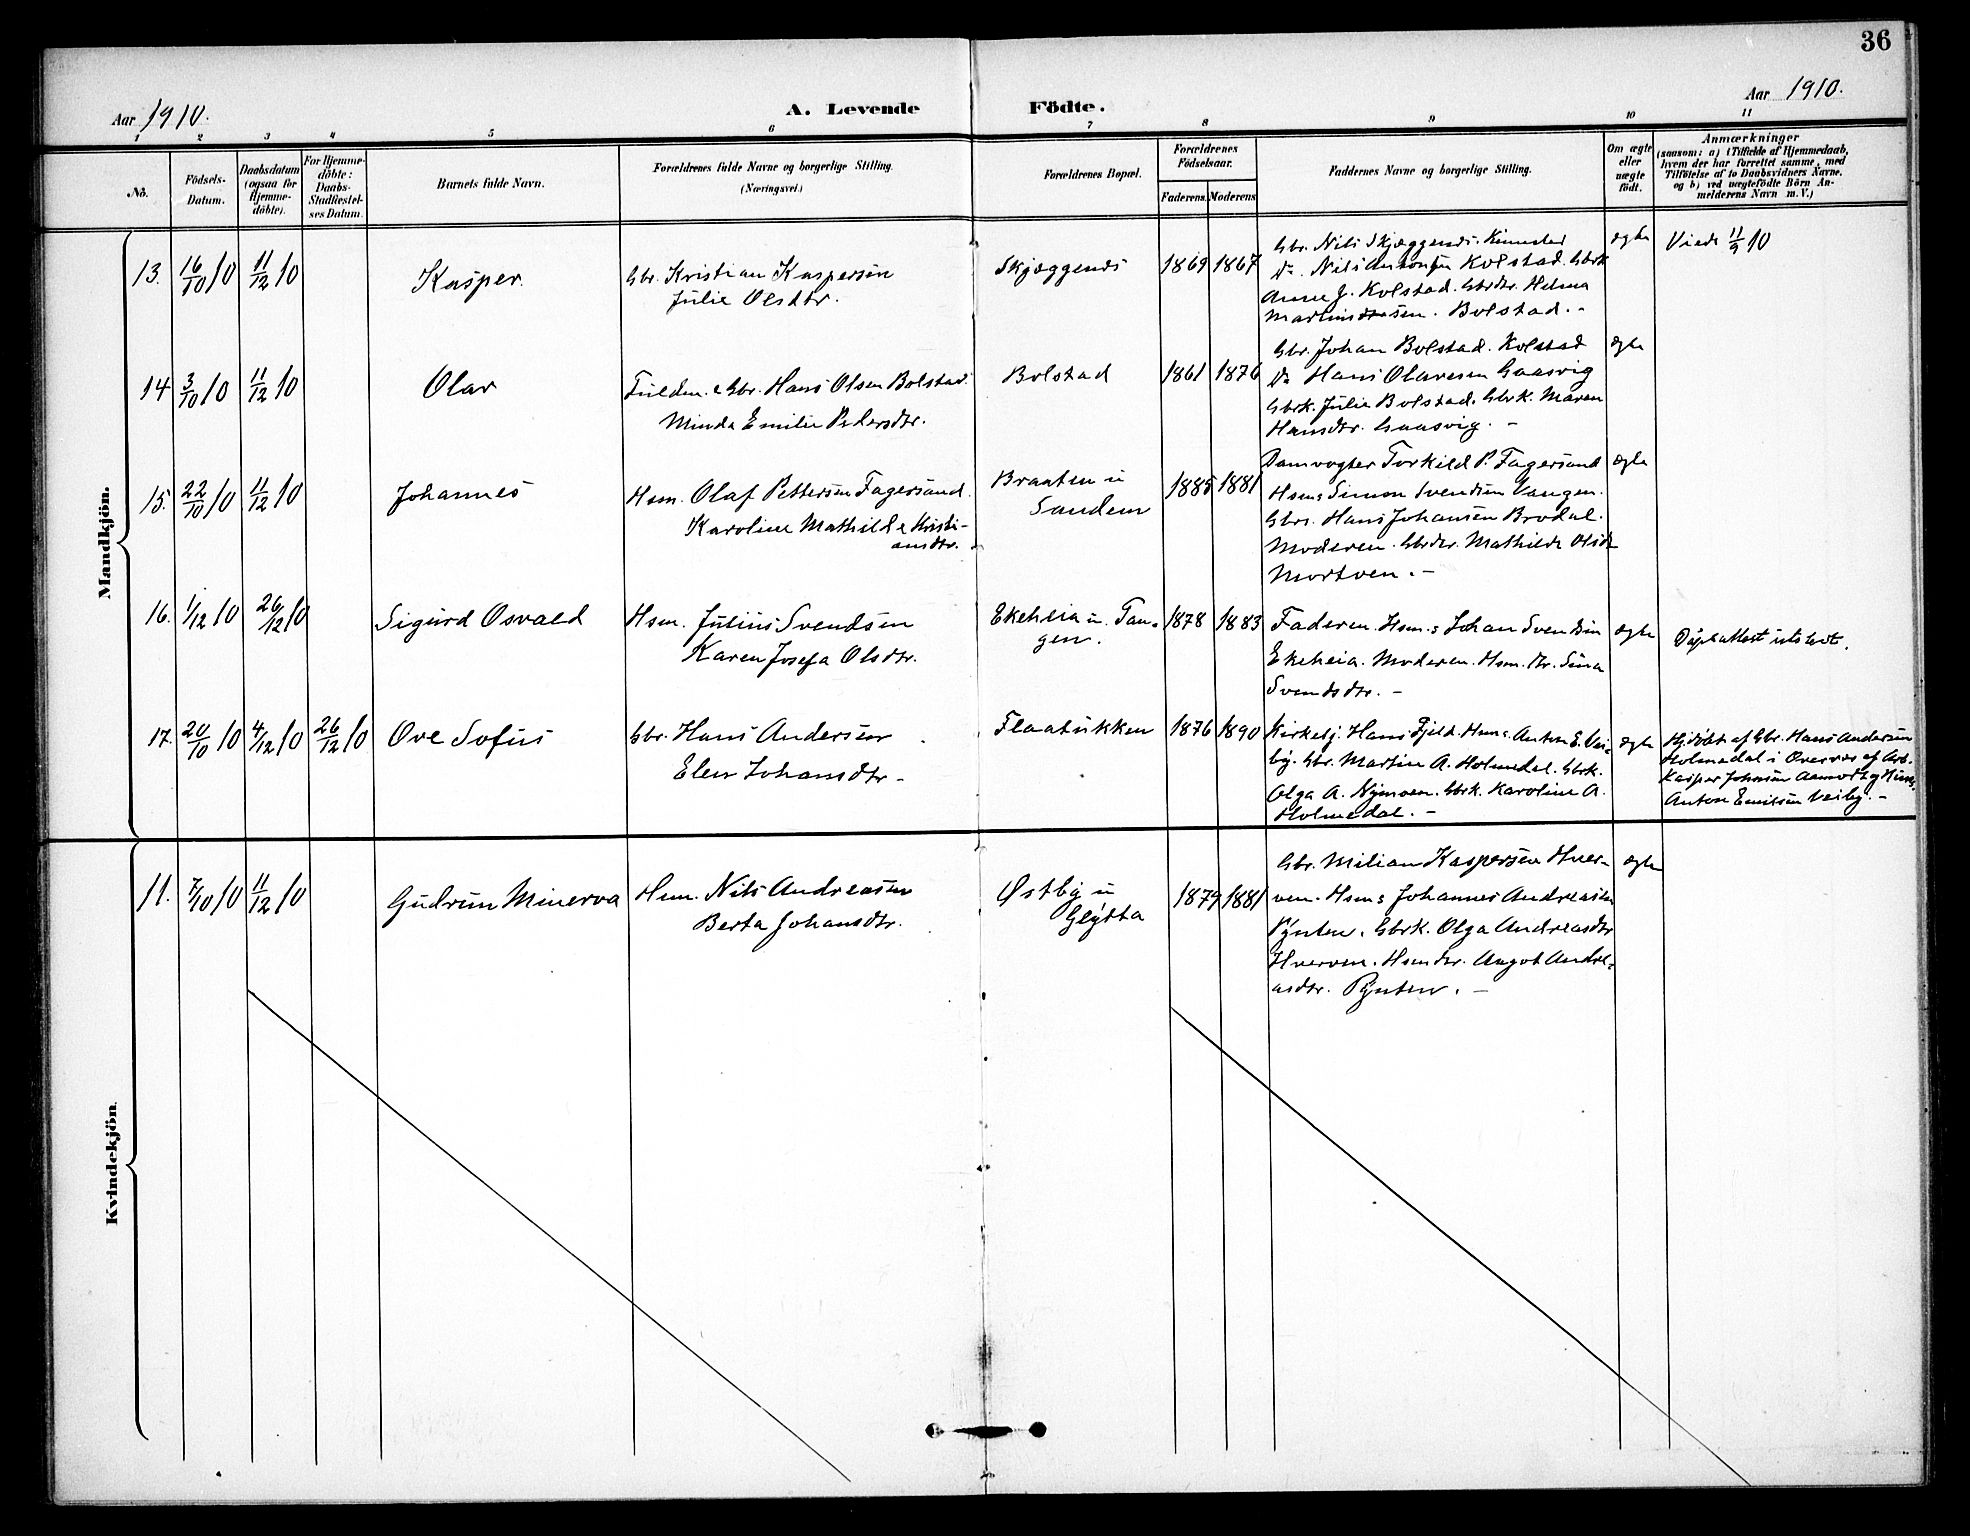 36
Aar 1910.
A. Levende Födte.
Aar 1910.
1 2 3 4 5 6 7 8 9 10 11
No.
Födsels-Datum.
Daabsdatum (ogsaa for Hjemme-döbte).
For Hjemme-döbte: Daabs-Stadfæstel-ses Datum.
Barnets fulde Navn.
Forældrenes fulde Navne og borgerlige Stilling.
(Næringsvei.)
Forældrenes Bopæl.
Forældrenes Födselsaar.
Faderens. Moderens.
Faddernes Navne og borgerlige Stilling.
Om ægte eller uægte födt.
Anmærkninger
(saasom: a) i Tilfælde af Hjemmedaab,
hvem der har forrettet samme, med
Tilföielse af to Daabsvidners Navne.
og b) ved uægtefödte Börn An-
melderens Navn m. V.)
Mandkjön.
13. 16/10 10 11/12 10 Kasper.
Gbr. Kristian Kaspersen
Julie Olsdtr.
Skjæggends 1869 1867
Gbr. Nils Skjæggends.
Do. Nils Antonsen Kolstad. Gbrk
Anne J. Kolstad. Gbrdtr. Helma
Martinsen. Bolstad. -
ægte
Viede 11/9 10
14 3/10 10 11/12 10 Olav
Fuldm. & Gbr. Hans Olsen Bolstad.
Minda Emilie Pedersdtr.
Bolstad 1861 1876
Gbr. Johan Bolstad. Kolstad
Do Hans Olavesen Gaasvig
Gbrk. Julie Bolstad. Gbrk. Maren
Hansdtr. Gaasvig. -
ægte
15. 22/10 10 11/12 10 Johannes
Hsm. Olaf Pettersen Fagersand.
Karoline Mathilde Kristi-
ansdtr.
Braaten u
Sandem
1885 1881
Damvogter Torkild P. Fagersand
Hsms Simon Svendsen Vangen.
Gbrs. Hans Johansen Brodal.
Moderen. Gbrdtr. Mathilde Olsdtr
Mortven. -
ægte
16. 1/12 10 26/12 10 Sigurd Osvald
Hsm. Julius Svendsen
Karen Josefa Olsdtr.
Ekeheia u. Tan-
gen.
1878 1883
Faderen. Hsm.s Johan Svendsen
Ekeheia. Moderen. Hsm. dtr. Sina
Svendsdtr. -
ægte
Daabsattest utstedt.
17. 20/10 10 4/12 10 26/12 10 Ove Sofus
Gbr. Hans Andersen
Elen Johansdtr -
Flaatukken 1876 1890
Kirkebj. Hans Fjeld. Hsm.s Anton E. Vei-
by. Gbr. Martin A. Holmedal. Gbrk.
Olga A. Nymoen. Gbrk. Karoline A.
Holmedal. -
ægte
Hj.döbt af Gbr. Hans Andersen
Holmedal i Overvær af Arb.
Kasper Johnsen Aamodt og Hsms.
Anton Emilsen Veiby. -
Kvindekjön.
11. 7/10 10 11/12 10 Gudrun Minerva
Hsm. Nils Andreasen
Berta Johansdtr.
Østby u
Gløtta
1879 1881
Gbr. Milian Kaspersen Hver-
ven. Hsms Johannes Andreasen
Pynten. Gbrk. Olga Andreasdtr
Hverven. Hsmdtr. Aagot Andre-
asdtr. Pynten. -
ægte